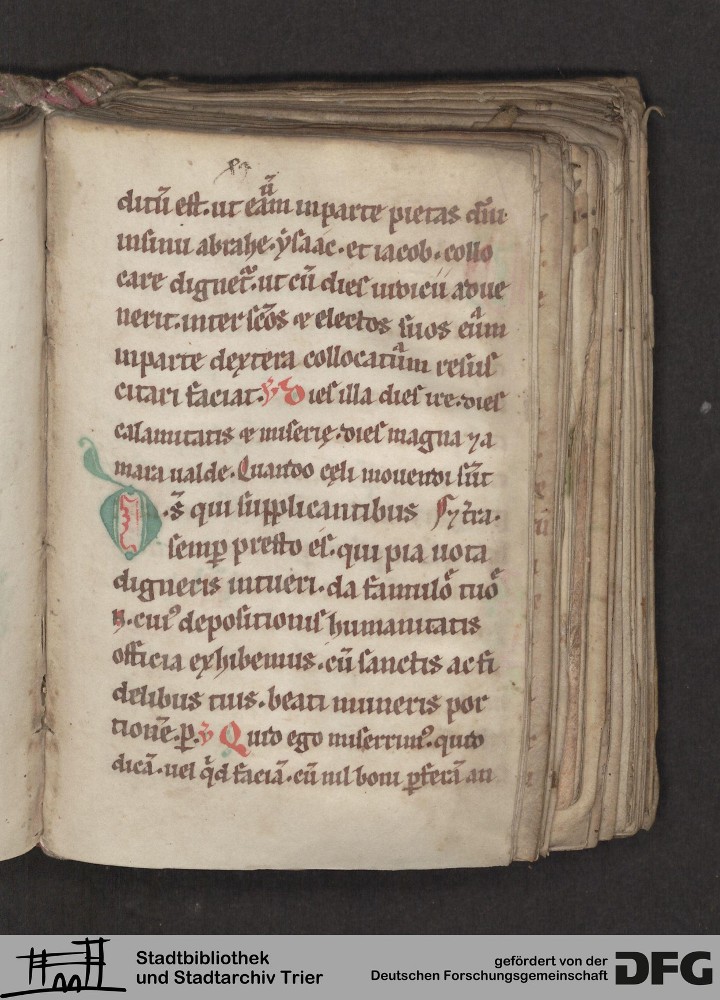 ditū est. ut eā̄m inparte pietas dīui
insinu abrahe. ysaac. et iacob. collo
care dignet̄. ut cū dies iudicii adue
nerit. inter scōs & electos suos eūm
inparte dextera collocatūm resus
citari faciat. ℣ Dies illa dies ire. dies
calamitatis & miserię. dies magna ⁊ a
mara ualde. Quando cęli mouendi sūt
D.s̄ qui supplicantibus ſ ⁊ t̄ra.
semꝑ presto es. qui pia uota
digneris intueri. da famulo tuo
N. cui᷒ depositionis humanitatis
officia exhibemus. cū sanctis ac fi
delibus tuis. beati muneris por
tionē. ꝑ. ℣ Quid ego miserrim᷒. quid
dicā. uel qd̄ faciā. cū nil boni ꝑferā an
Stadtbibliothek
und Stadtarchiv Trier
gefördert von der
Deutschen Forschungsgemeinschaft
DFG